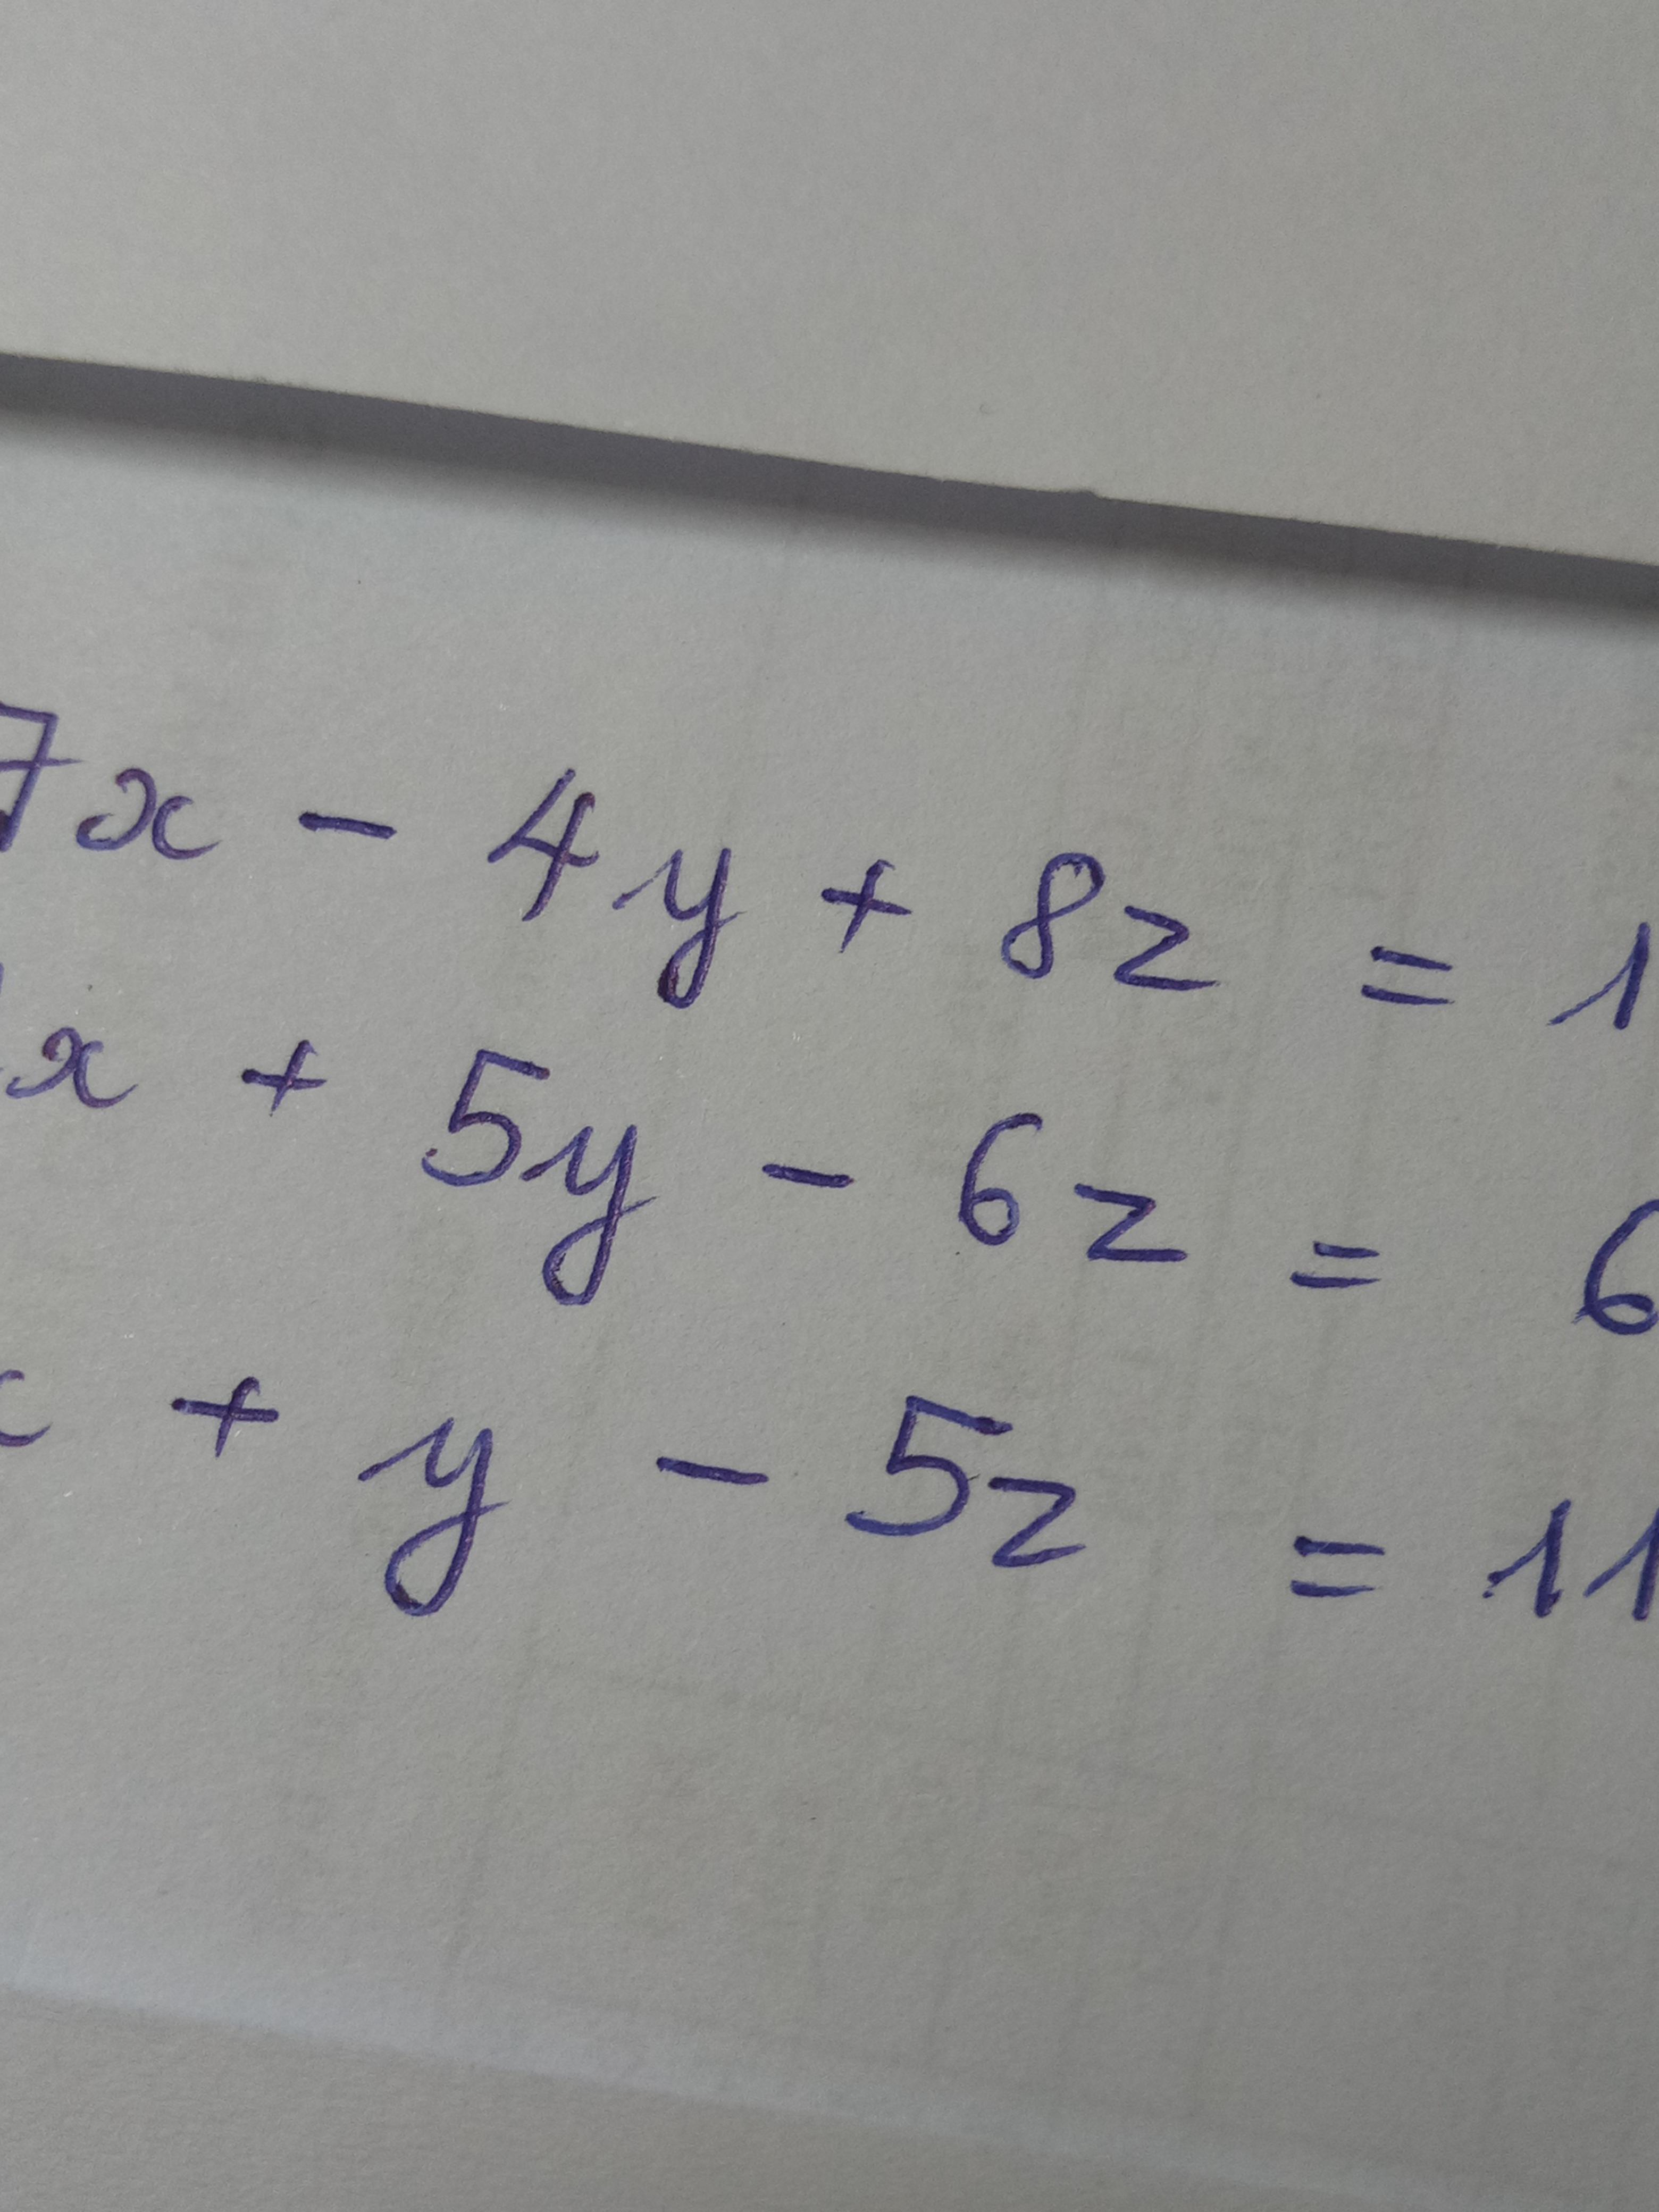 7x - 4y + 8z = 1
x + 5y - 6z = 6
x + y - 5z = 11